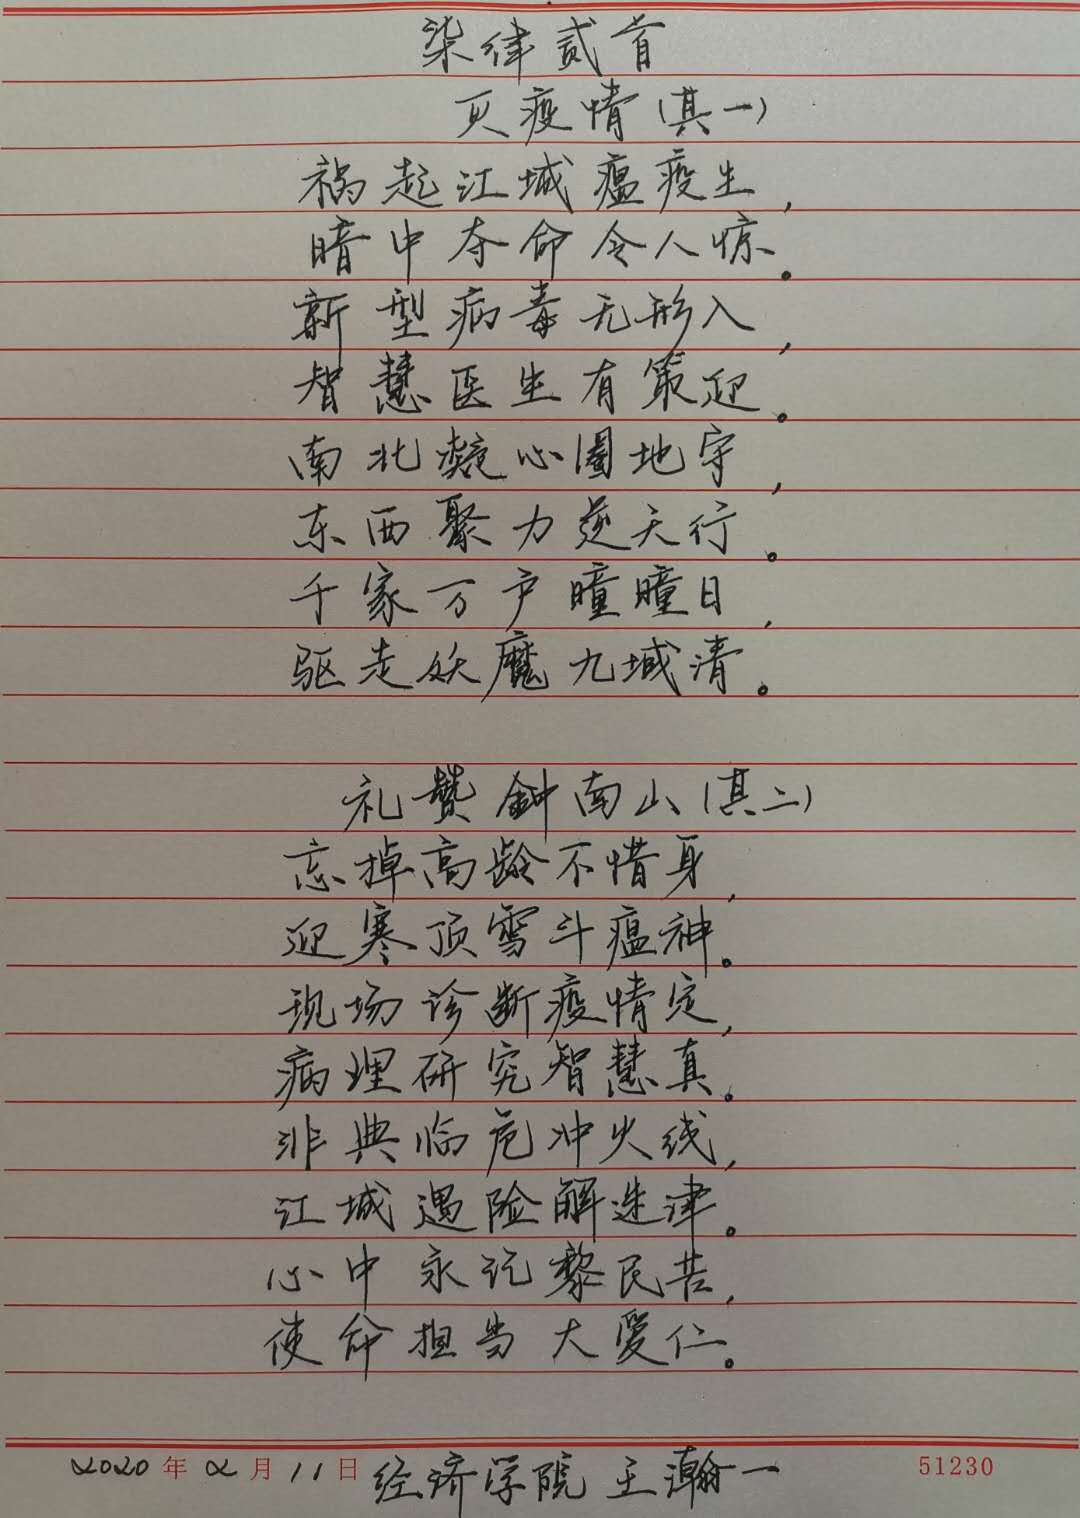 柒律贰首
灭疫情(其一)
祸起江城瘟疫生,
暗中夺命令人惊。
新型病毒无形入,
智慧医生有策迎。
南北凝心圈地守,
东西聚力逆天行。
千家万户瞳瞳日,
驱走妖魔九域清。
礼赞钟南山(其二)
忘掉高龄不惜身,
迎寒顶雪斗瘟神。
现场诊断疫情定,
病理研究智慧真。
非典临危冲火线,
江城遇险解迷津。
心中永记黎民苦,
使命担当大爱仁。
2020年2月11日 经济学院 王瀚一 51230